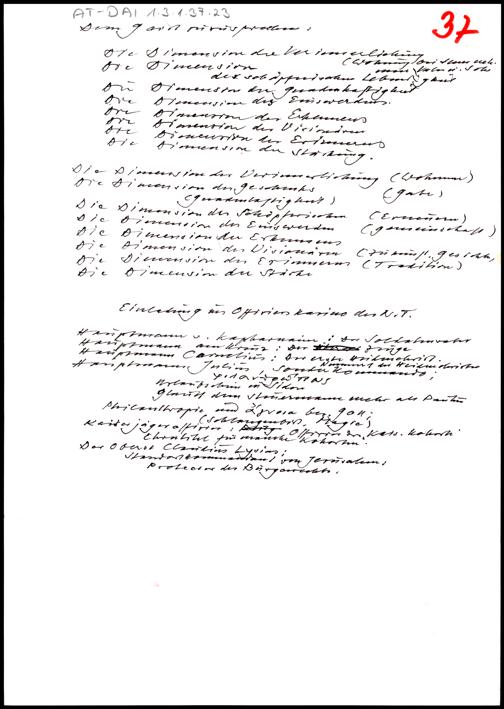 AT-DAI 1.3.1.37.23
37
Dem Geist
Die Dimension der Verinnerlichung
Die Dimension (Wohnung
des schöpferischen Lebendigkeit
Die Dimension der Geschenkhaftigkeit
Die Dimension des Einswerdens.
Die Dimension des Erkennens
Die Dimension des Visionären
Die Dimension des Erinnerns
Die Dimension der Stärkung.
Die Dimension der Verinnerlichung (Wohnen)
Die Dimension des Geschenks (Gabe)
Die Dimension des Schöpferischen (Erneuern)
Die Dimension des Einswerden (Gemeinschaft)
Die Dimension des Erkennens
Die Dimension des Visionären (Zukunft,
Die Dimension des Erinnerns (Tradition)
Die Dimension der Stärke
Einladung ins Offizierskasino des N.T.
Hauptmann v. Kapharnaum: Der Soldatenvater
Hauptmann am Kreuz: Der Zeuge
Hauptmann Cornelius: Der erste Heidenchrist.
Hauptmann Julius Sonderkommando;
Urlaubschein in Sidon
Glaubt dem Steuermann mehr als Paulus
Philanthropie und Zyresa bez. Gott;
(Schlangenbiss, Magie)
Kaiserjägeroffizier: Offizier der Kais. Kohorte
Ehrentitel für manche Kohorten
Der Oberst Claudius Lysias;
Standortkommandant von Jerusalem,
Protector des Bürgerrechts.